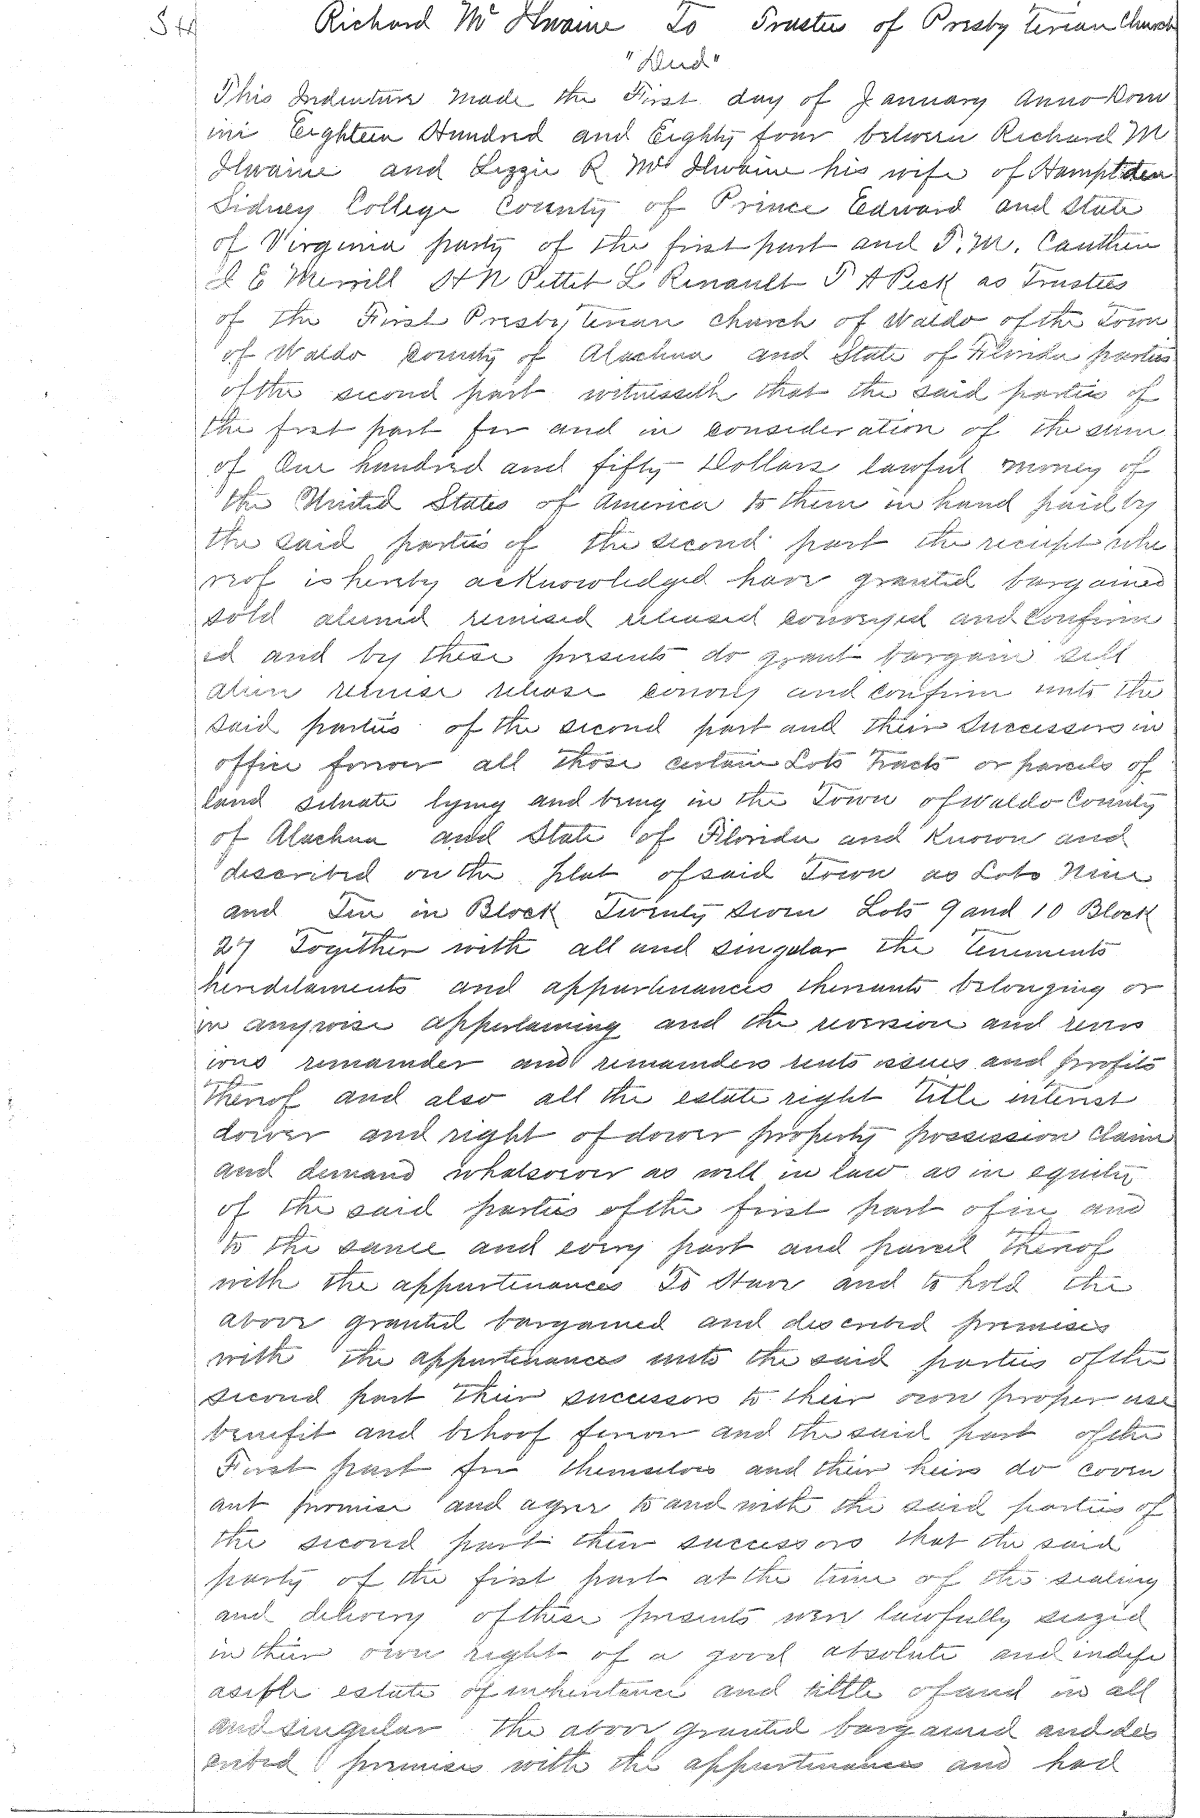 Richard Mc Ilwaine To Trustees of Presbyterian Church
"Deed"
This Indenture made the First day of January Anno Dom
ini Eighteen Hundred and Eighty four between Richard M
Ilwaine and Lizzie R Mc Ilwaine his wife of Hampden
Sidney College County of Prince Edward and State
of Virginia party of the first part and T. M. Cauthen
I E Merrill H N Pettit L Renault T A Peck as Trustees
of the First Presbyterian church of Waldo of the Town
of Waldo County of Alachua and State of Florida parties
of the second part witnesseth that the said parties of
the first part for and in consideration of the sum
of One hundred and fifty Dollars lawful money of
the United States of America to them in hand paid by
the said parties of the second part the receipt whe
reof is hereby acknowledged have granted bargained
sold aliened remised released conveyed and confirm
ed and by these presents do grant bargain sell
alien remise release convey and confirm unto the
said parties of the second part and their successors in
office forever all those certain Lots Tracts or parcels of
land situate lying and being in the Town of Waldo County
of Alachua and State of Florida and known and
described on the plat of said Town as Lots Nine
and Ten in Block Twenty seven Lots 9 and 10 Block
27 Together with all and singular the tenements
hereditaments and appurtenances thereunto belonging or
in anywise appertaining and the reversion and revers
ions remainder and remainders rents issues and profits
thereof and also all the estate right title interest
dower and right of dower property possession claim
and demand whatsoever as well in law as in equity
of the said parties of the first part of in and
to the same and every part and parcel thereof
with the appurtenances To Have and to hold the
above granted bargained and described premises
with the appurtenances unto the said parties of the
second part their successors to their own proper use
benefit and behoof forever and the said part of the
First part for themselves and their heirs do coven
ant promise and agree to and with the said parties of
the second part their successors that the said
party of the first part at the time of the sealing
and delivery of these presents were lawfully seized
in their own right of a good absolute and indefe
asible estate of inheritance and tittle of and in all
and singular the above granted bargained and des
cribed premises with the appurtenances and had